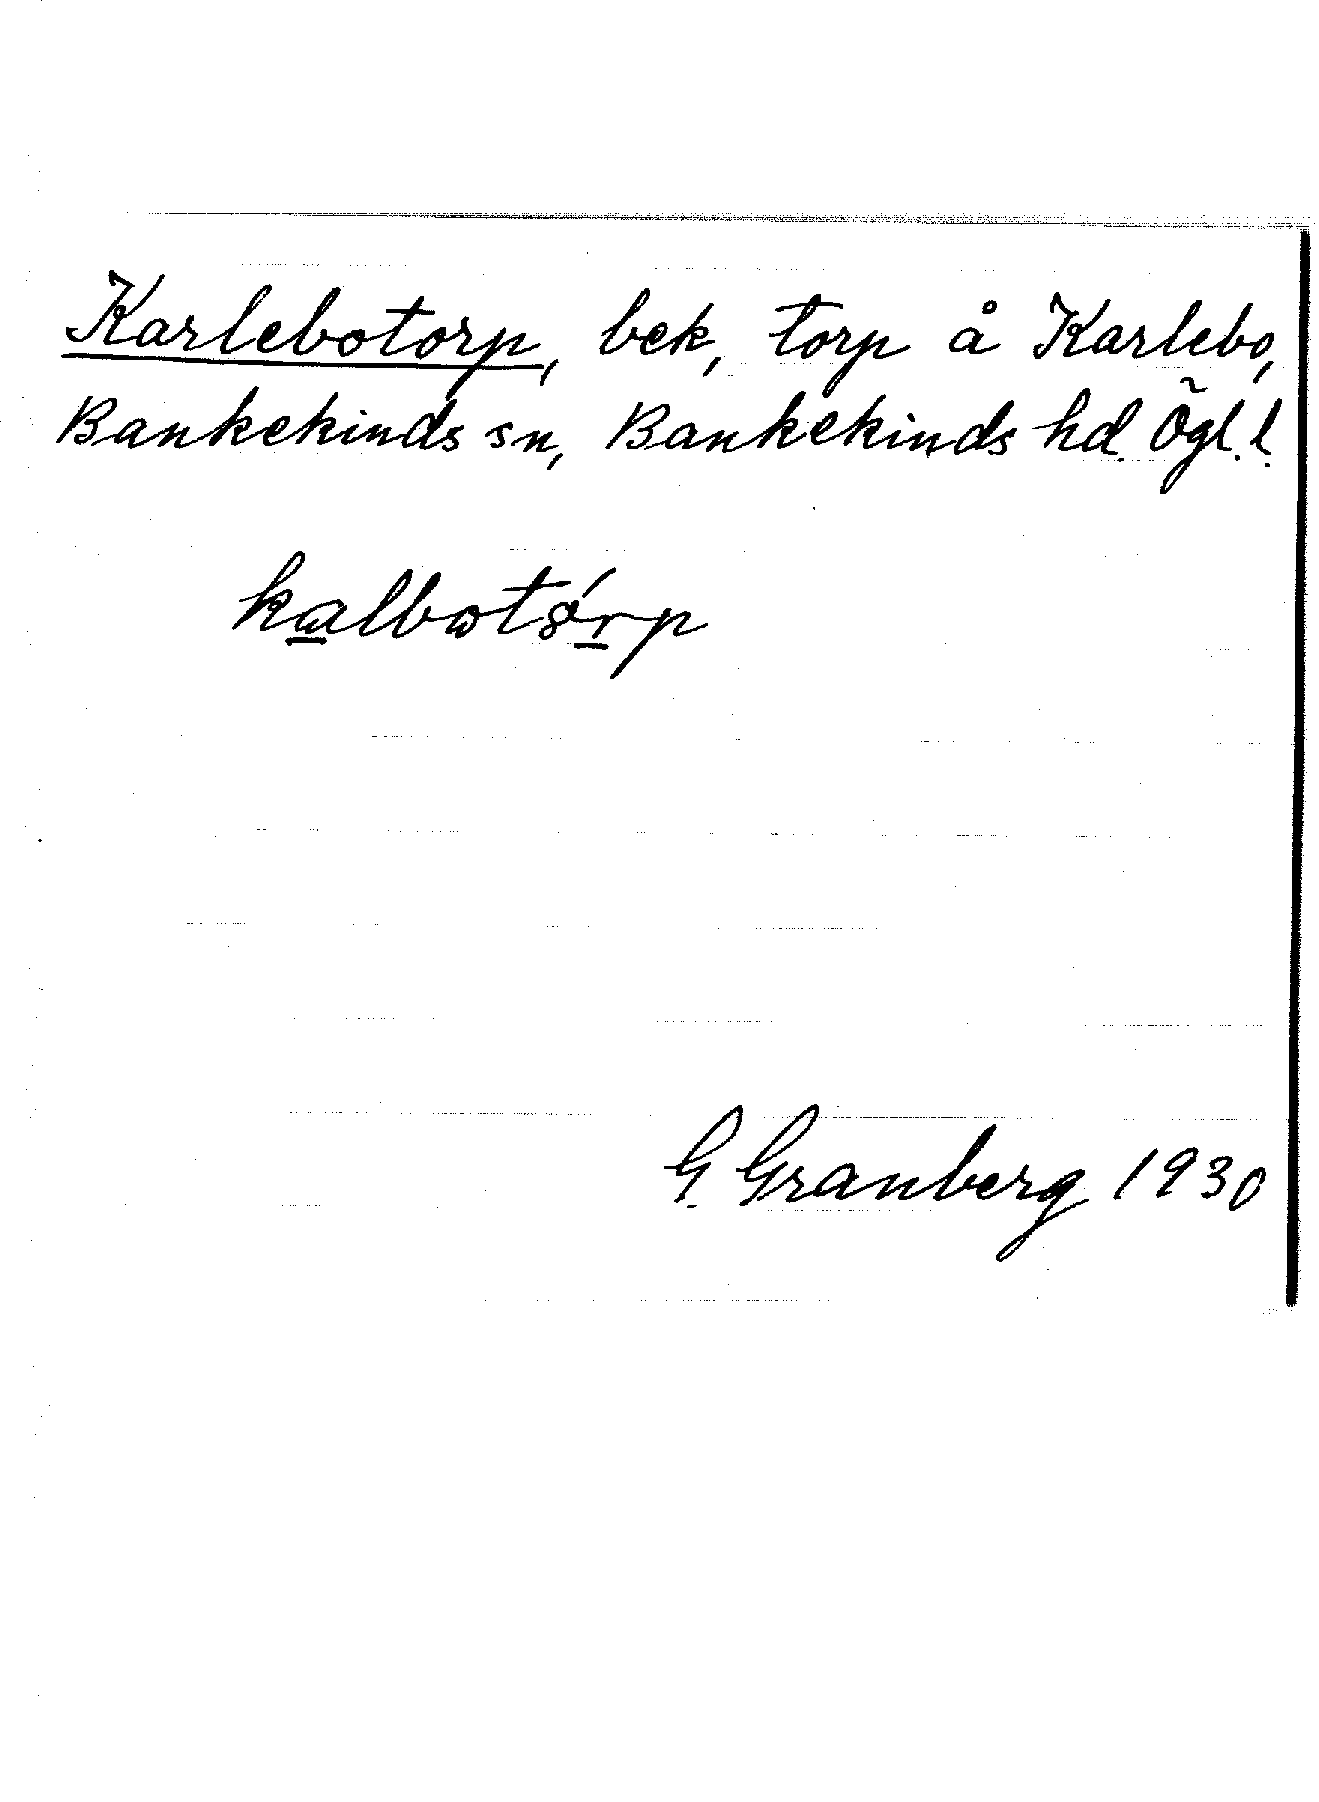 Karlebotorp, bek, torp å Karlebo,
Bankekinds sn, Bankekinds hd. Ögl. l.
kalbotórp
G. Granberg 1930